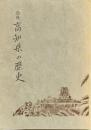 高知県の歴史